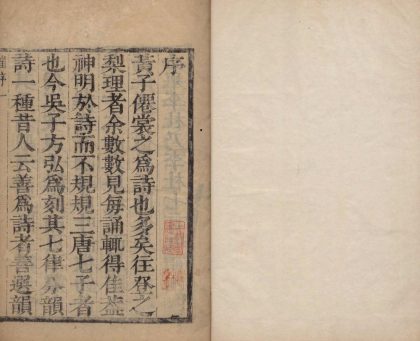 序
黃子僊裳之為詩也多矣往登之
梨理者余數數見每誦輒得佳盖
神明於詩而不規規三唐七子者
也今吳子方弘為刻其七律分韻
詩一種昔人云善為詩者善選韻